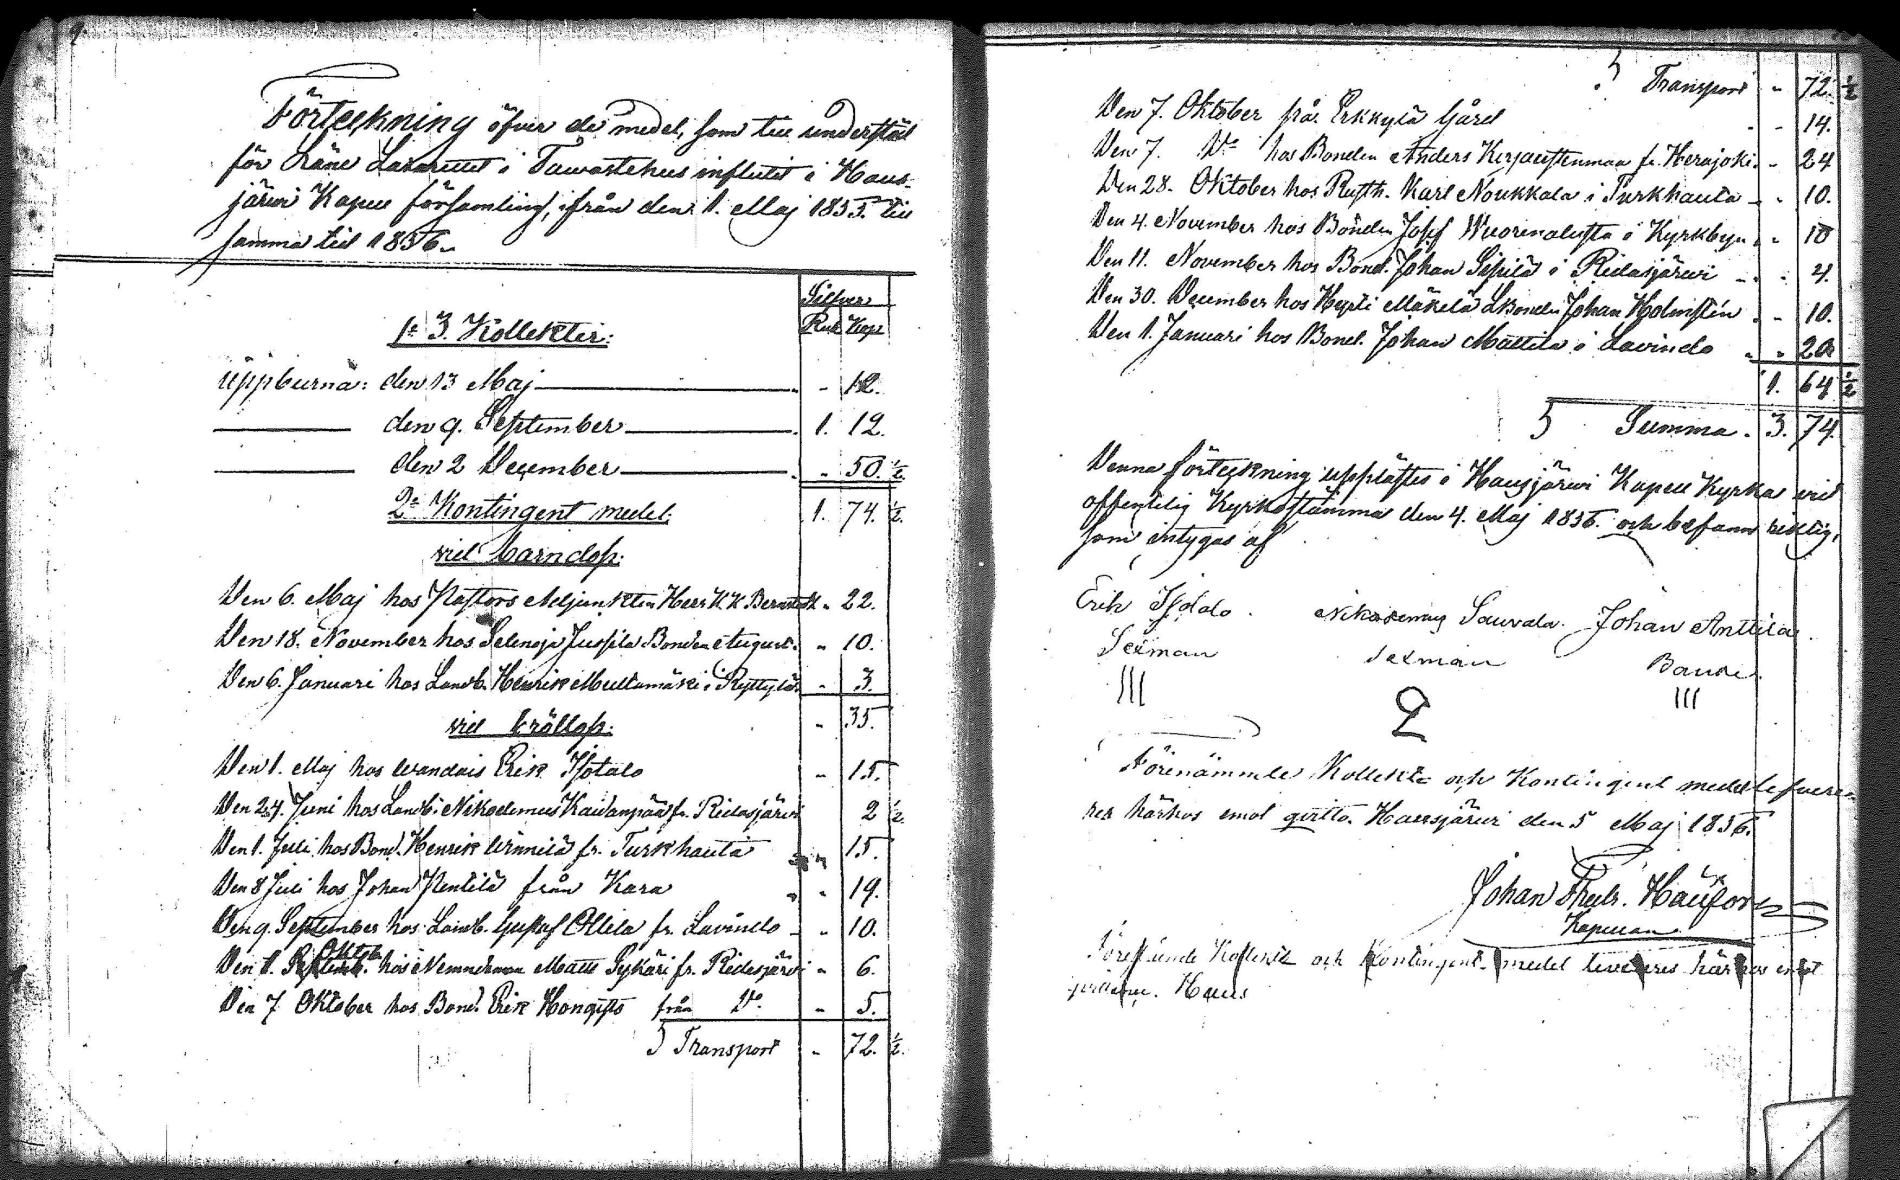 Förteckning öfver de medel, som till underhåll
för Läne Lazarettet i Tawastehus influtit i Haus-
järwi Kapell församling, ifrån den 1. Maj 1855. till
samma tid 1856.
Silfver
Rub. Kop.
1º 3. Kollekter:
Uppburna: den 13 Maj - 12.
den 9. September 1. 12.
den 2 December - 50. ½
2º Kontingent medel. 1. 74. ½
vid barndop:
Den 6. Maj hos Pastors Adjunkten Herr K. K. - 22.
Den 18. November hos Selenoja Jussila Bonden August - 10.
Den 6. Januari hos Landb. Henrik Multamäki i Ryttylä - 3.
- 35.
vid bröllop:
Den 1. Maj hos Erik Isotalo - 15.
Den 24. Juni hos Landb. Nikodemus fr. Ridasjärwi 2 ½
Den 1. Juli hos Bond. Henrik fr. Turkhauta 15.
Den 8 Juli hos Johan Pentilä från Kara - 19.
Den 9. September hos Landb. Gustaf Ollila fr. Lavindo - 10.
Den 1. Oktob. hos Nemndeman Matts Sykäri fr. Ridasjärwi - 6.
Den 7 Oktober hos Bond. Erik från Dº. - 5.
Transport - 72. ½
Transport - 72. ½
Den 7. Oktober från Erkkylä Gård - 14.
Den 7. Dº hos Bonden Anders fr. Herajoki - 24
Den 28. Oktober hos Rusth. Karl Noukkala i Turkhauta - 10.
Den 4. November hos Bonden Josef i Kyrkbyn - 10
Den 11. November hos Bond. Johan Sipilä i Ridasjärwi - 4.
Den 30. December hos Hyrti Mäkelä LBonden Johan Holmstén - 10.
Den 1. Januari hos Bond. Johan Mattila i Lavindo - 20
1. 64 ½
Summa. 3. 74.
Denna förteckning upplästes i Hausjärwi Kapell Kyrka vid
offentlig Kyrkostämma den 4. Maj 1856. och befanns riktig,
som intygas af
Erik Isotalo. Nikodemus Sauvala. Johan Anttila.
Sexman Sexman Bonde.
Förenämnde Kollekt och Kontingent medel lefvere-
res härhos emot qvitto. Hausjärwi den 5 Maj 1856.
Johan Fredr.
Kapellan
Kollekt och Kontingent medel levereres härhos emot
Haus